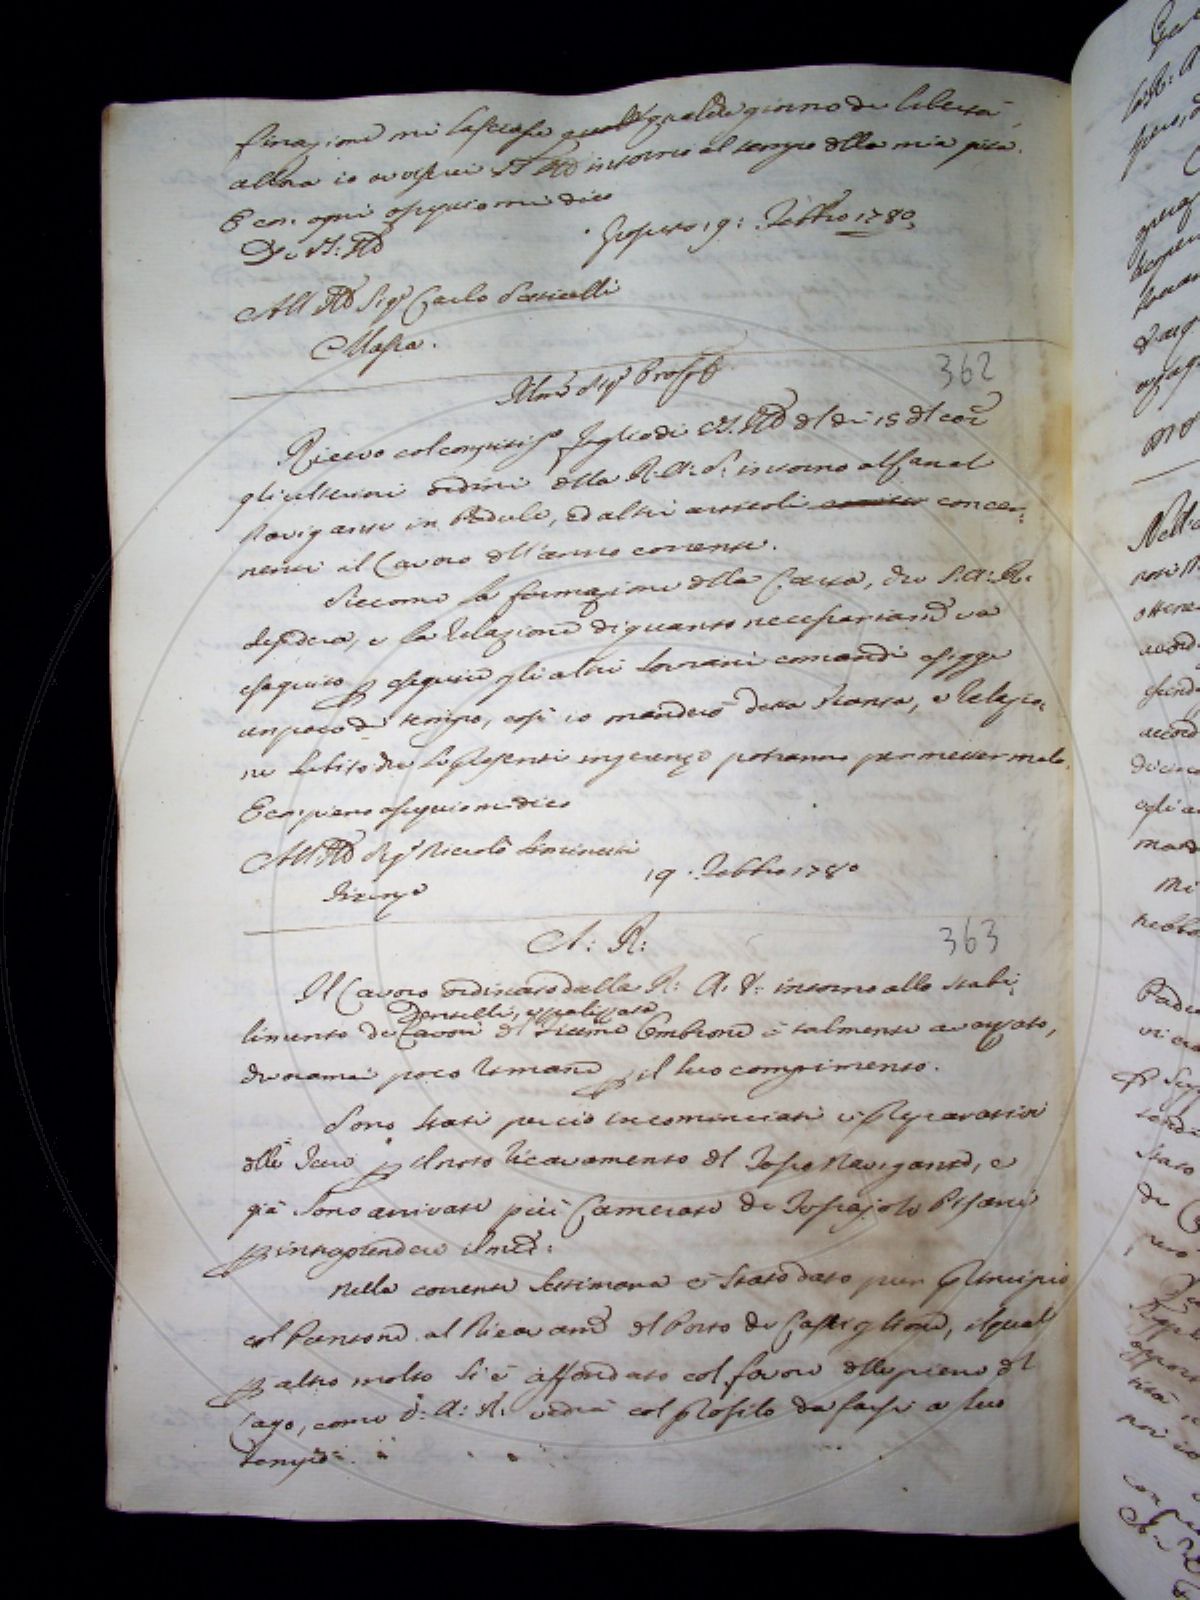 finazioni mi lasciasse qualche giorno di libertà,
allora io avviserei intorno al tempo della mia gita.
E con ogni ossequio mi dico
Di V.S. Ill. Grosseto 19: Febbro 1780,
All' Ill Sigr Carlo
Massa.
362
Illmo Sigr
Ricevo col foglio di V.S. Ill del dì 15 del corr
gli ulteriori ordini della R. A. S. intorno al
Navigante in Padule, ed altri articoli concer-
nenti il Lavoro dell'anno corrente.
Siccome la formazione della Carta, che S. A. R.
desidera, e la Relazione di quanto necessariamte va
eseguito p eseguire gli altri sovrani comandi esigge
un poco di tempo, così io manderò detta Pianta, e Relazio-
ne subito che le presenti ingerenze potranno permettermelo.
E con pieno ossequio mi dico
All' Ill Sigr Niccolò
Firenze 19. Febbro 1780
A. R. 363
Il Lavoro ordinato dalla R. A. V. intorno allo stabi-
Pontelli, e palizzata
limento de Lavori del Fiume Ombrone è talmente avanzato,
che ormai poco rimane p il suo compimento.
Sono stati perciò incominciati i Preparativi
delle p il noto ricavamento del Fosso Navigante, e
già sono arrivate più Camerate di Pisani
p intraprendere il med:
Nella corrente settimana è stato dato pur principio
col Pontone al Ricavamto del Porto di Castiglione, il qual
p altro molto si è affondato col favore delle piene del
Lago, come V. A. R. vedrà col Profilo da farsi a suo
tempo.